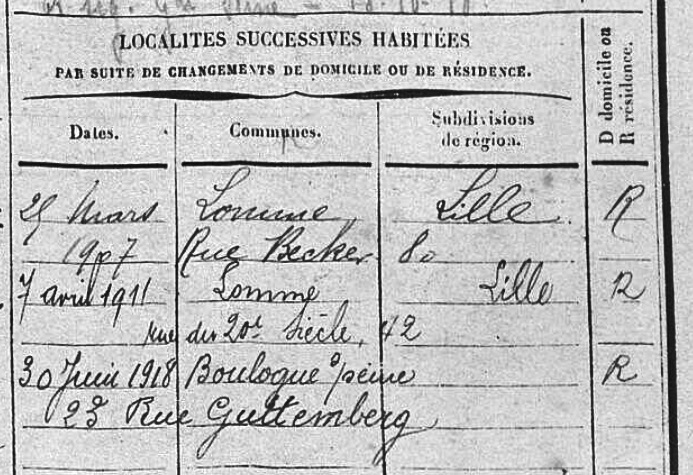 LOCALITES SUCCESSIVES HABITÉES
PAR SUITE DE CHANGEMENTS DE DOMICILE OU DE RÉSIDENCE.
D domicile ou
R résidence.
Dates. Communes. Subdivisions
de région.
Mars Lomme, Lille R
1907 Rue Becker 80
7 avril 1911 Lomme Lille R
rue du 20e Siècle, 42
30 Juin 1918 Boulogne s/seine R
23 Rue Guttemberg